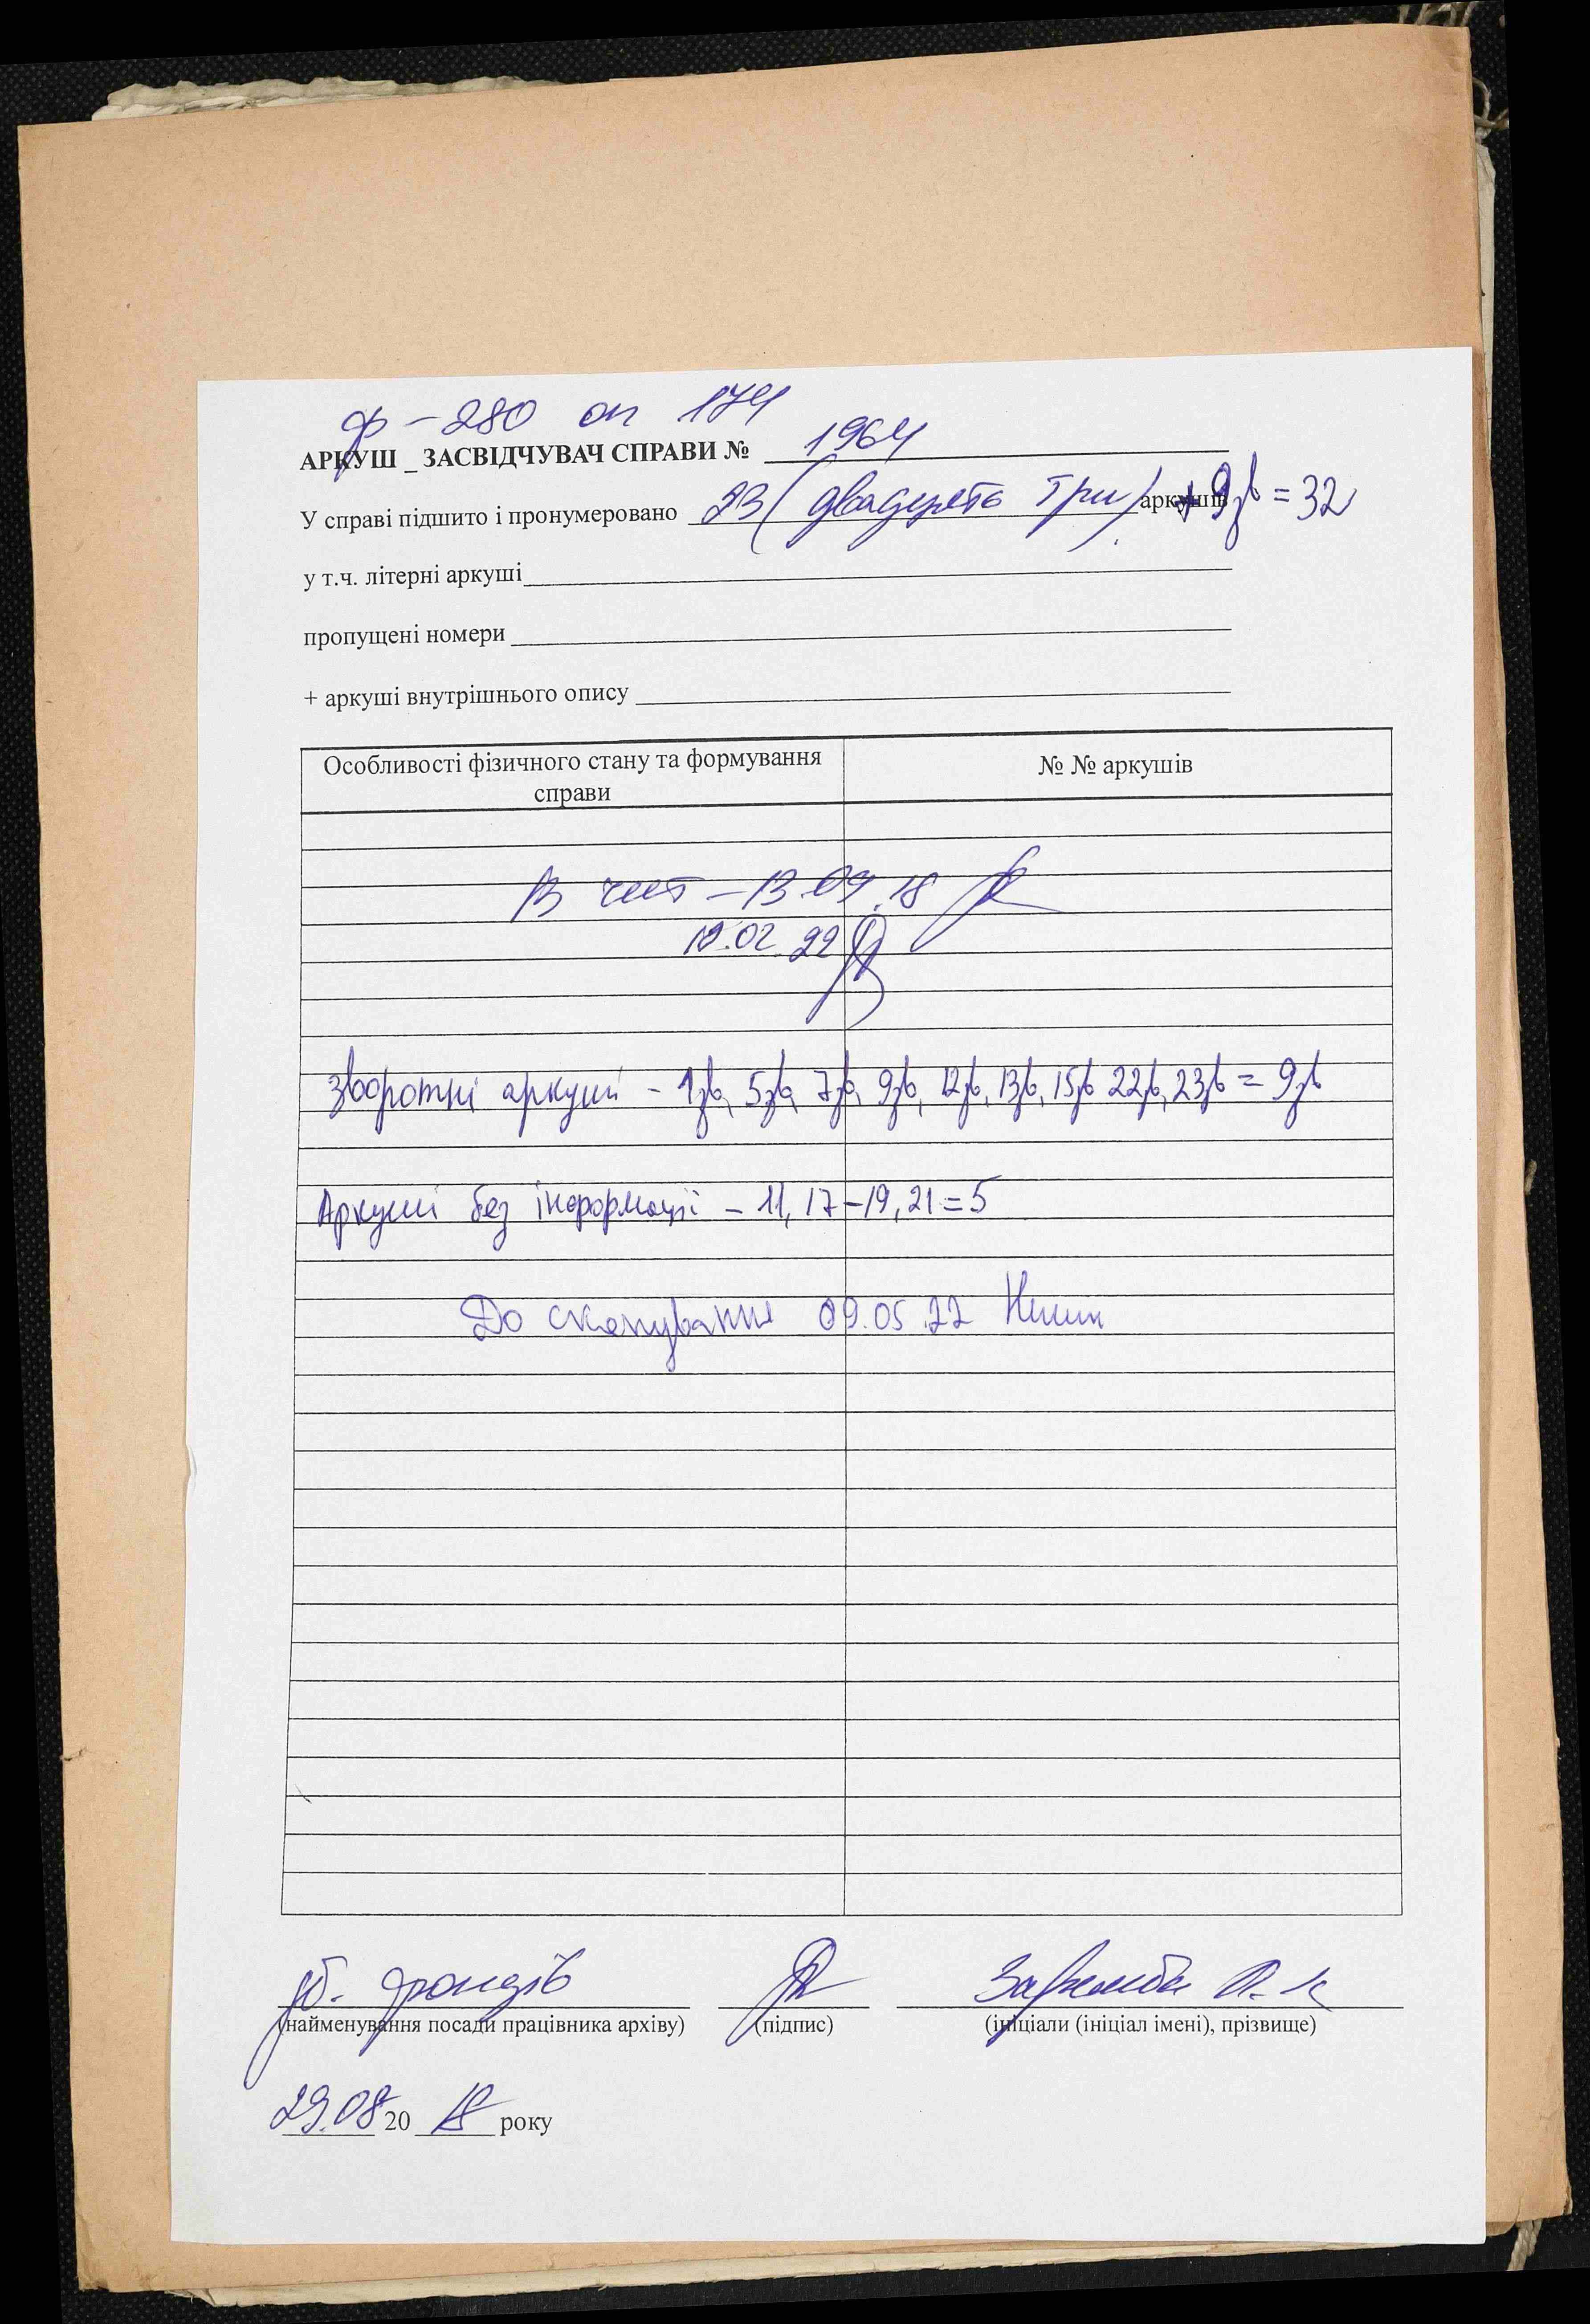 ф-280 оп 174
АРКУШ _ ЗАСВІДЧУВАЧ СПРАВИ № 1964
У справі підшито і пронумеровано 23 (двадцять три) аркушів + 9зв = 32
у т.ч. літерні аркуші
пропущені номери
+ аркуші внутрішнього опису
Особливості фізичного стану та формування справи
№ № аркушів
В чит - 13.09.18
.02.22
зворотні аркуші - 1зв, 5зв, 7зв, 9зв, 12зв, 13зв, 15зв 22зв, 23зв = 9зв
Аркуші без інформації - 11, 17-19, 21 = 5
До сканування 09.05.22
зб. фондів
(найменування посади працівника архіву)
(підпис)
(ініціали (ініціал імені), прізвище)
29.08 20 18 року